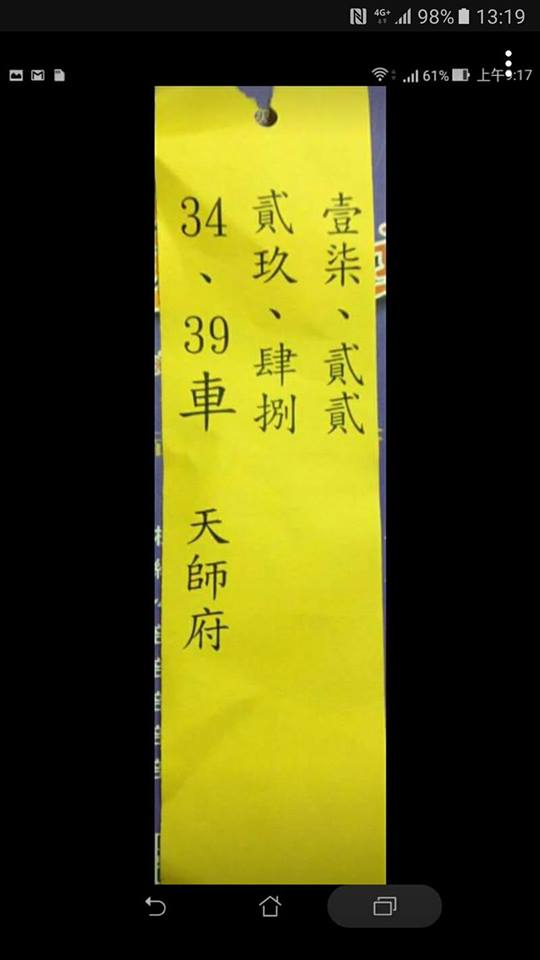 98% 13:19
4G+
61% 上午9:17
壹柒、貳貳
貳玖、肆捌
34、39車 天師府